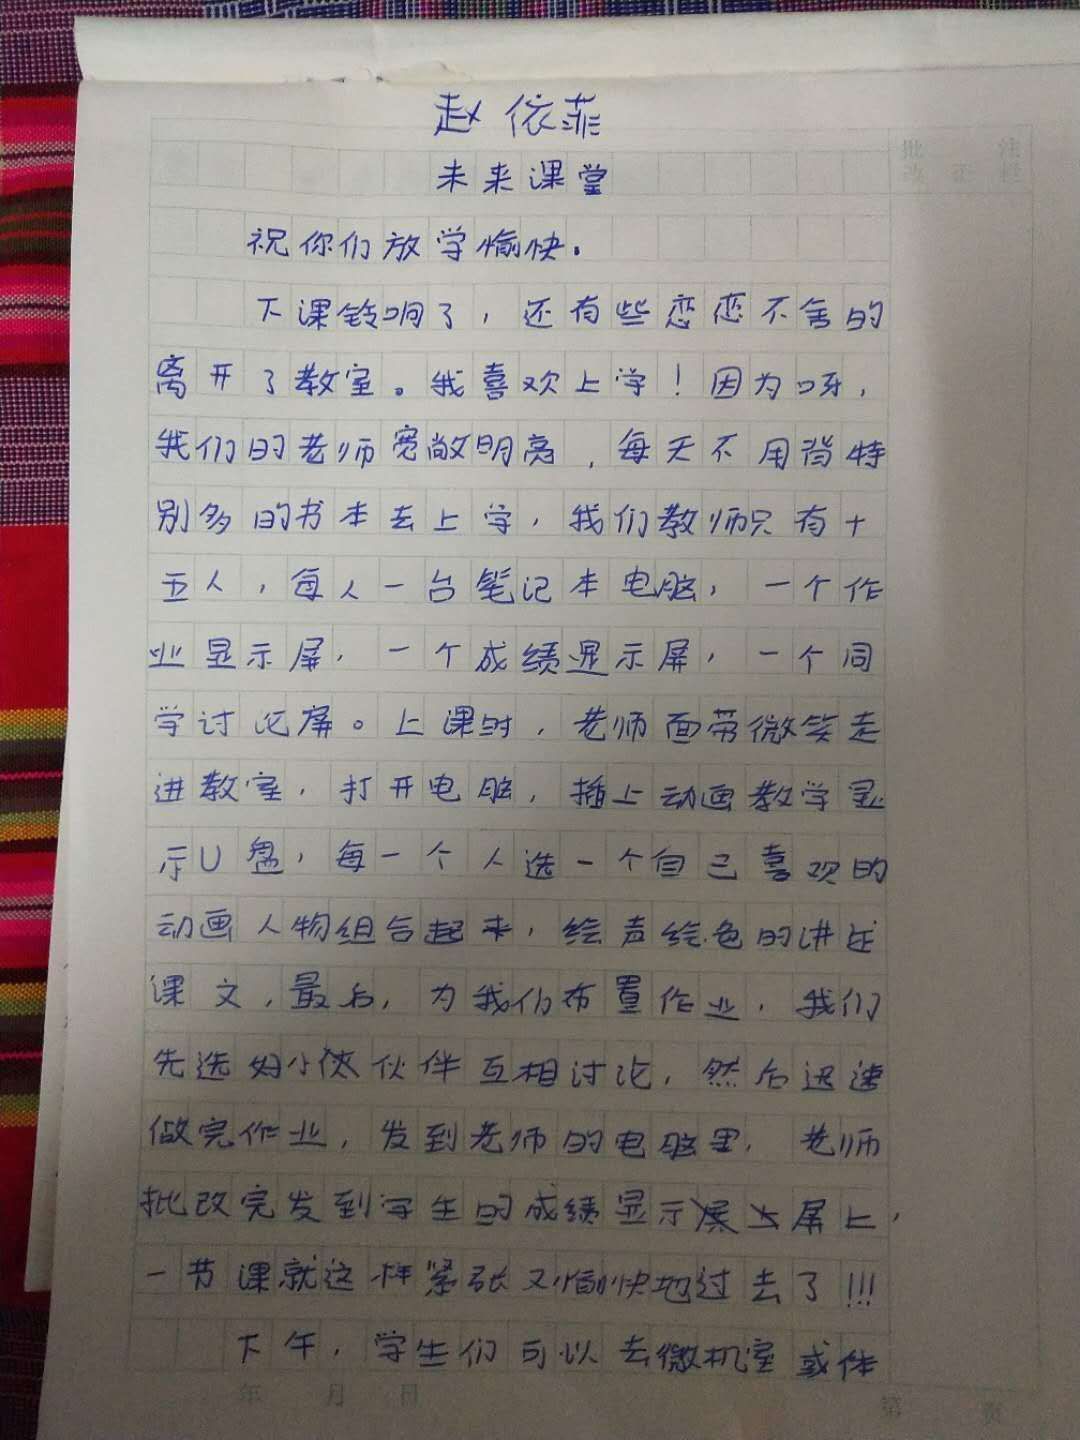 赵依菲
未来课堂
祝你们放学愉快。
下课铃响了，还有些恋恋不舍的
离开了教室。我喜欢上学！因为呀，
我们的老师宽敞明亮，每天不用背特
别多的书本去上学，我们教师只有十
五人，每人一台笔记本电脑，一个作
业显示屏，一个成绩显示屏，一个同
学讨论屏。上课时，老师面带微笑走
进教室，打开电脑，插上动画教学显
示U盘，每一个人选一个自己喜欢的
动画人物组合起来，绘声绘色的讲述
课文，最后，为我们布置作业，我们
先选好小伙伙伴互相讨论，然后迅速
做完作业，发到老师的电脑里，老师
批改完发到学生的成绩显示屏上，
一节课就这样紧张又愉快地过去了!!!
下午，学生们可以去微机室或体
年 月 日
第 页